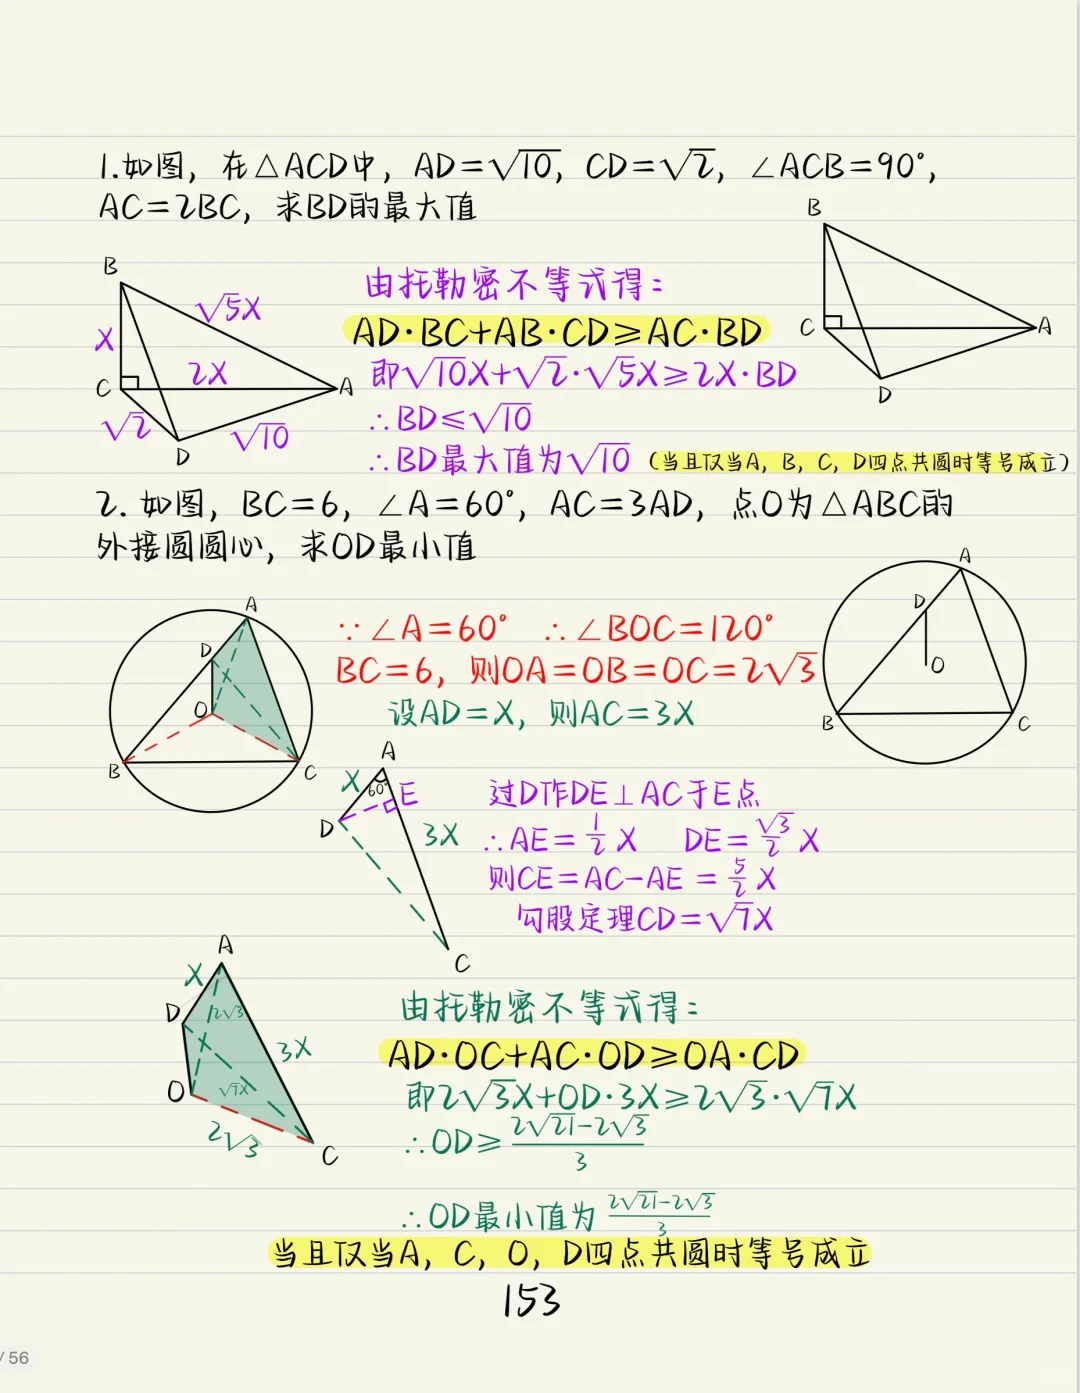 1.如图，在△ACD中，AD=√10，CD=√2，∠ACB=90°，
AC=2BC，求BD的最大值
B
C
A
D
B
√5X
X
2X
C
A
√2
√10
D
由托勒密不等式得：
AD·BC+AB·CD≥AC·BD
即√10X+√2·√5X≥2X·BD
∴BD≤√10
∴BD最大值为√10（当且仅当A，B，C，D四点共圆时等号成立）
2. 如图，BC=6，∠A=60°，AC=3AD，点O为△ABC的
外接圆圆心，求OD最小值
A
D
O
B
C
A
D
O
B
C
∵∠A=60° ∴∠BOC=120°
BC=6，则OA=OB=OC=2√3
设AD=X，则AC=3X
A
X
60°
E
D
3X
C
过D作DE⊥AC于E点
∴AE=1/2 X DE=√3/2 X
则CE=AC-AE=5/2 X
勾股定理CD=√7X
A
X
D
2√3
3X
O
√7X
2√3
C
由托勒密不等式得：
AD·OC+AC·OD≥OA·CD
即2√3X+OD·3X≥2√3·√7X
∴OD≥(2√21-2√3)/3
∴OD最小值为(2√21-2√3)/3
当且仅当A，C，O，D四点共圆时等号成立
153
/56